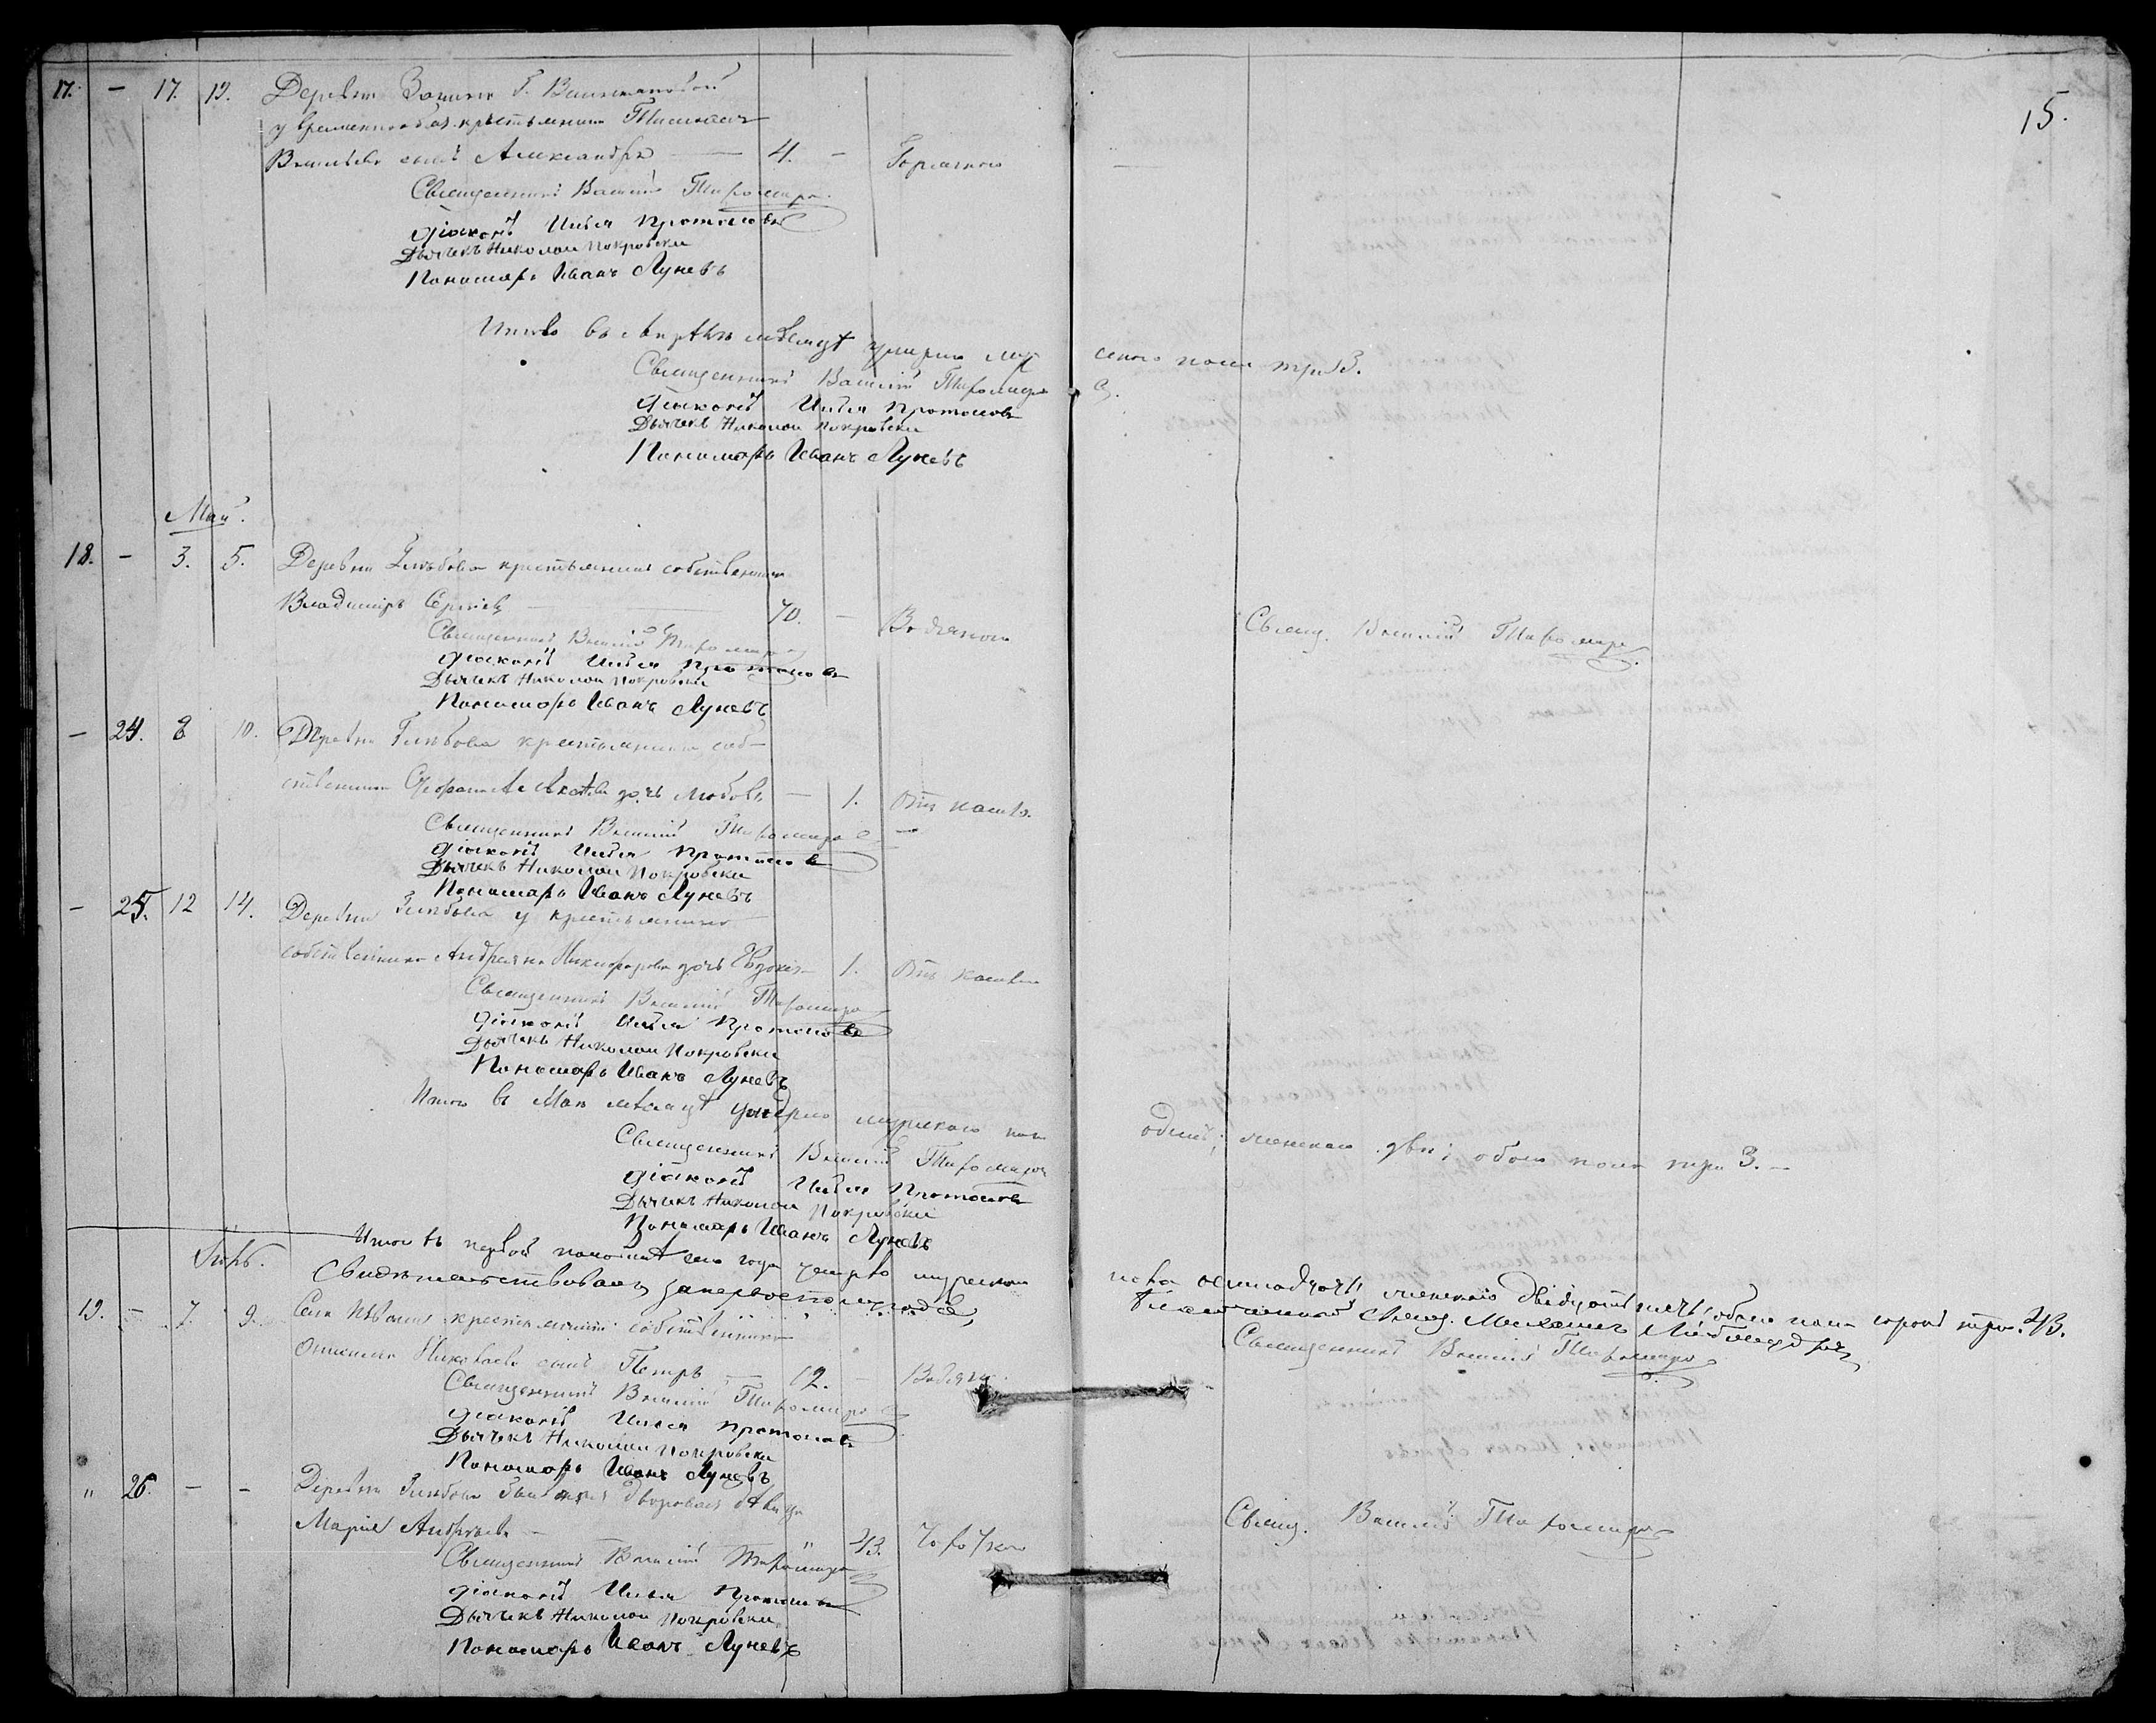 15.
17. — 17. 19. Деревни Г.
у временнообяз. крестьянина
Васильева сынъ Александръ — 4. — Горячкою —
Священникъ Василій Тихомиров
Діаконъ Илья Протопоповъ
Дьячекъ Николай Покровскій
Пономарь Иванъ Луневъ
Итого въ Апрѣлѣ мѣсяцѣ умерло мужескаго пола три 3.
Священникъ Василій Тихомиров
Діаконъ Илья Протопоповъ
Дьячекъ Николай Покровскій
Пономарь Иванъ Луневъ
Май.
18. — 3. 5. Деревни Глѣбова крестьянинъ собственникъ
Владиміръ Сергѣевъ — 70. — Водяною Свящ. Василій Тихомиров.
Священникъ Василій Тихомиров
Діаконъ Илья Протопоповъ
Дьячекъ Николай Покровскій
Пономарь Иванъ Луневъ
— 24. 8 10. Деревни Глѣбова крестьянина соб-
ственника Алексѣева дочь Любовь — 1. Отъ кашля.
Священникъ Василій Тихомиров —
Діаконъ Илья Протопоповъ
Дьячекъ Николай Покровскій
Пономарь Иванъ Луневъ
— 25. 12 14. Деревни Глѣбова у крестьянина
собственника Андреяна Никифорова дочь Евдокія — 1. Отъ кашля
Священникъ Василій Тихомиров
Діаконъ Илья Протопоповъ
Дьячекъ Николай Покровскій
Пономарь Иванъ Луневъ
Итого въ Маѣ мѣсяцѣ умерло мужескаго пола одинъ; женскаго двѣ; обоего пола три 3. —
Священникъ Василій Тихомиров
Діаконъ Илья Протопоповъ
Дьячекъ Николай Покровскій
Пономарь Иванъ Луневъ
Итого въ первой половинѣ сего года умерло мужескаго пола осмнадцать женскаго двадцать пять обоего пола сорокъ три. 43.
Свидѣтельствовалъ за первое полугодіе, Свящ. Михаилъ
Священникъ Василій Тихомиров
Іюль.
19. — 7. 9. Села крестьянина собственника
Николаева сынъ Петръ — 12. — Водяною.
Священникъ Василій Тихомиров
Діаконъ Илья Протопоповъ
Дьячекъ Николай Покровскій
Пономарь Иванъ Луневъ
" 26. — - Деревни Глѣбова бывшая дворовая дѣвица
Марія Андреева — 43. Чахоткою Свящ. Василій Тихомиров
Священникъ Василій Тихомиров
Діаконъ Илья Протопоповъ
Дьячекъ Николай Покровскій
Пономарь Иванъ Луневъ